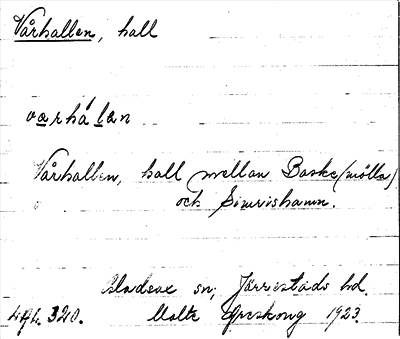 Vårhallen, hall
varhálan
Vårhallen, hall mellan Baske(mölla)
och Simrishamn.
Gladsax sn; Järrestads hd.
320. Malte 1923.